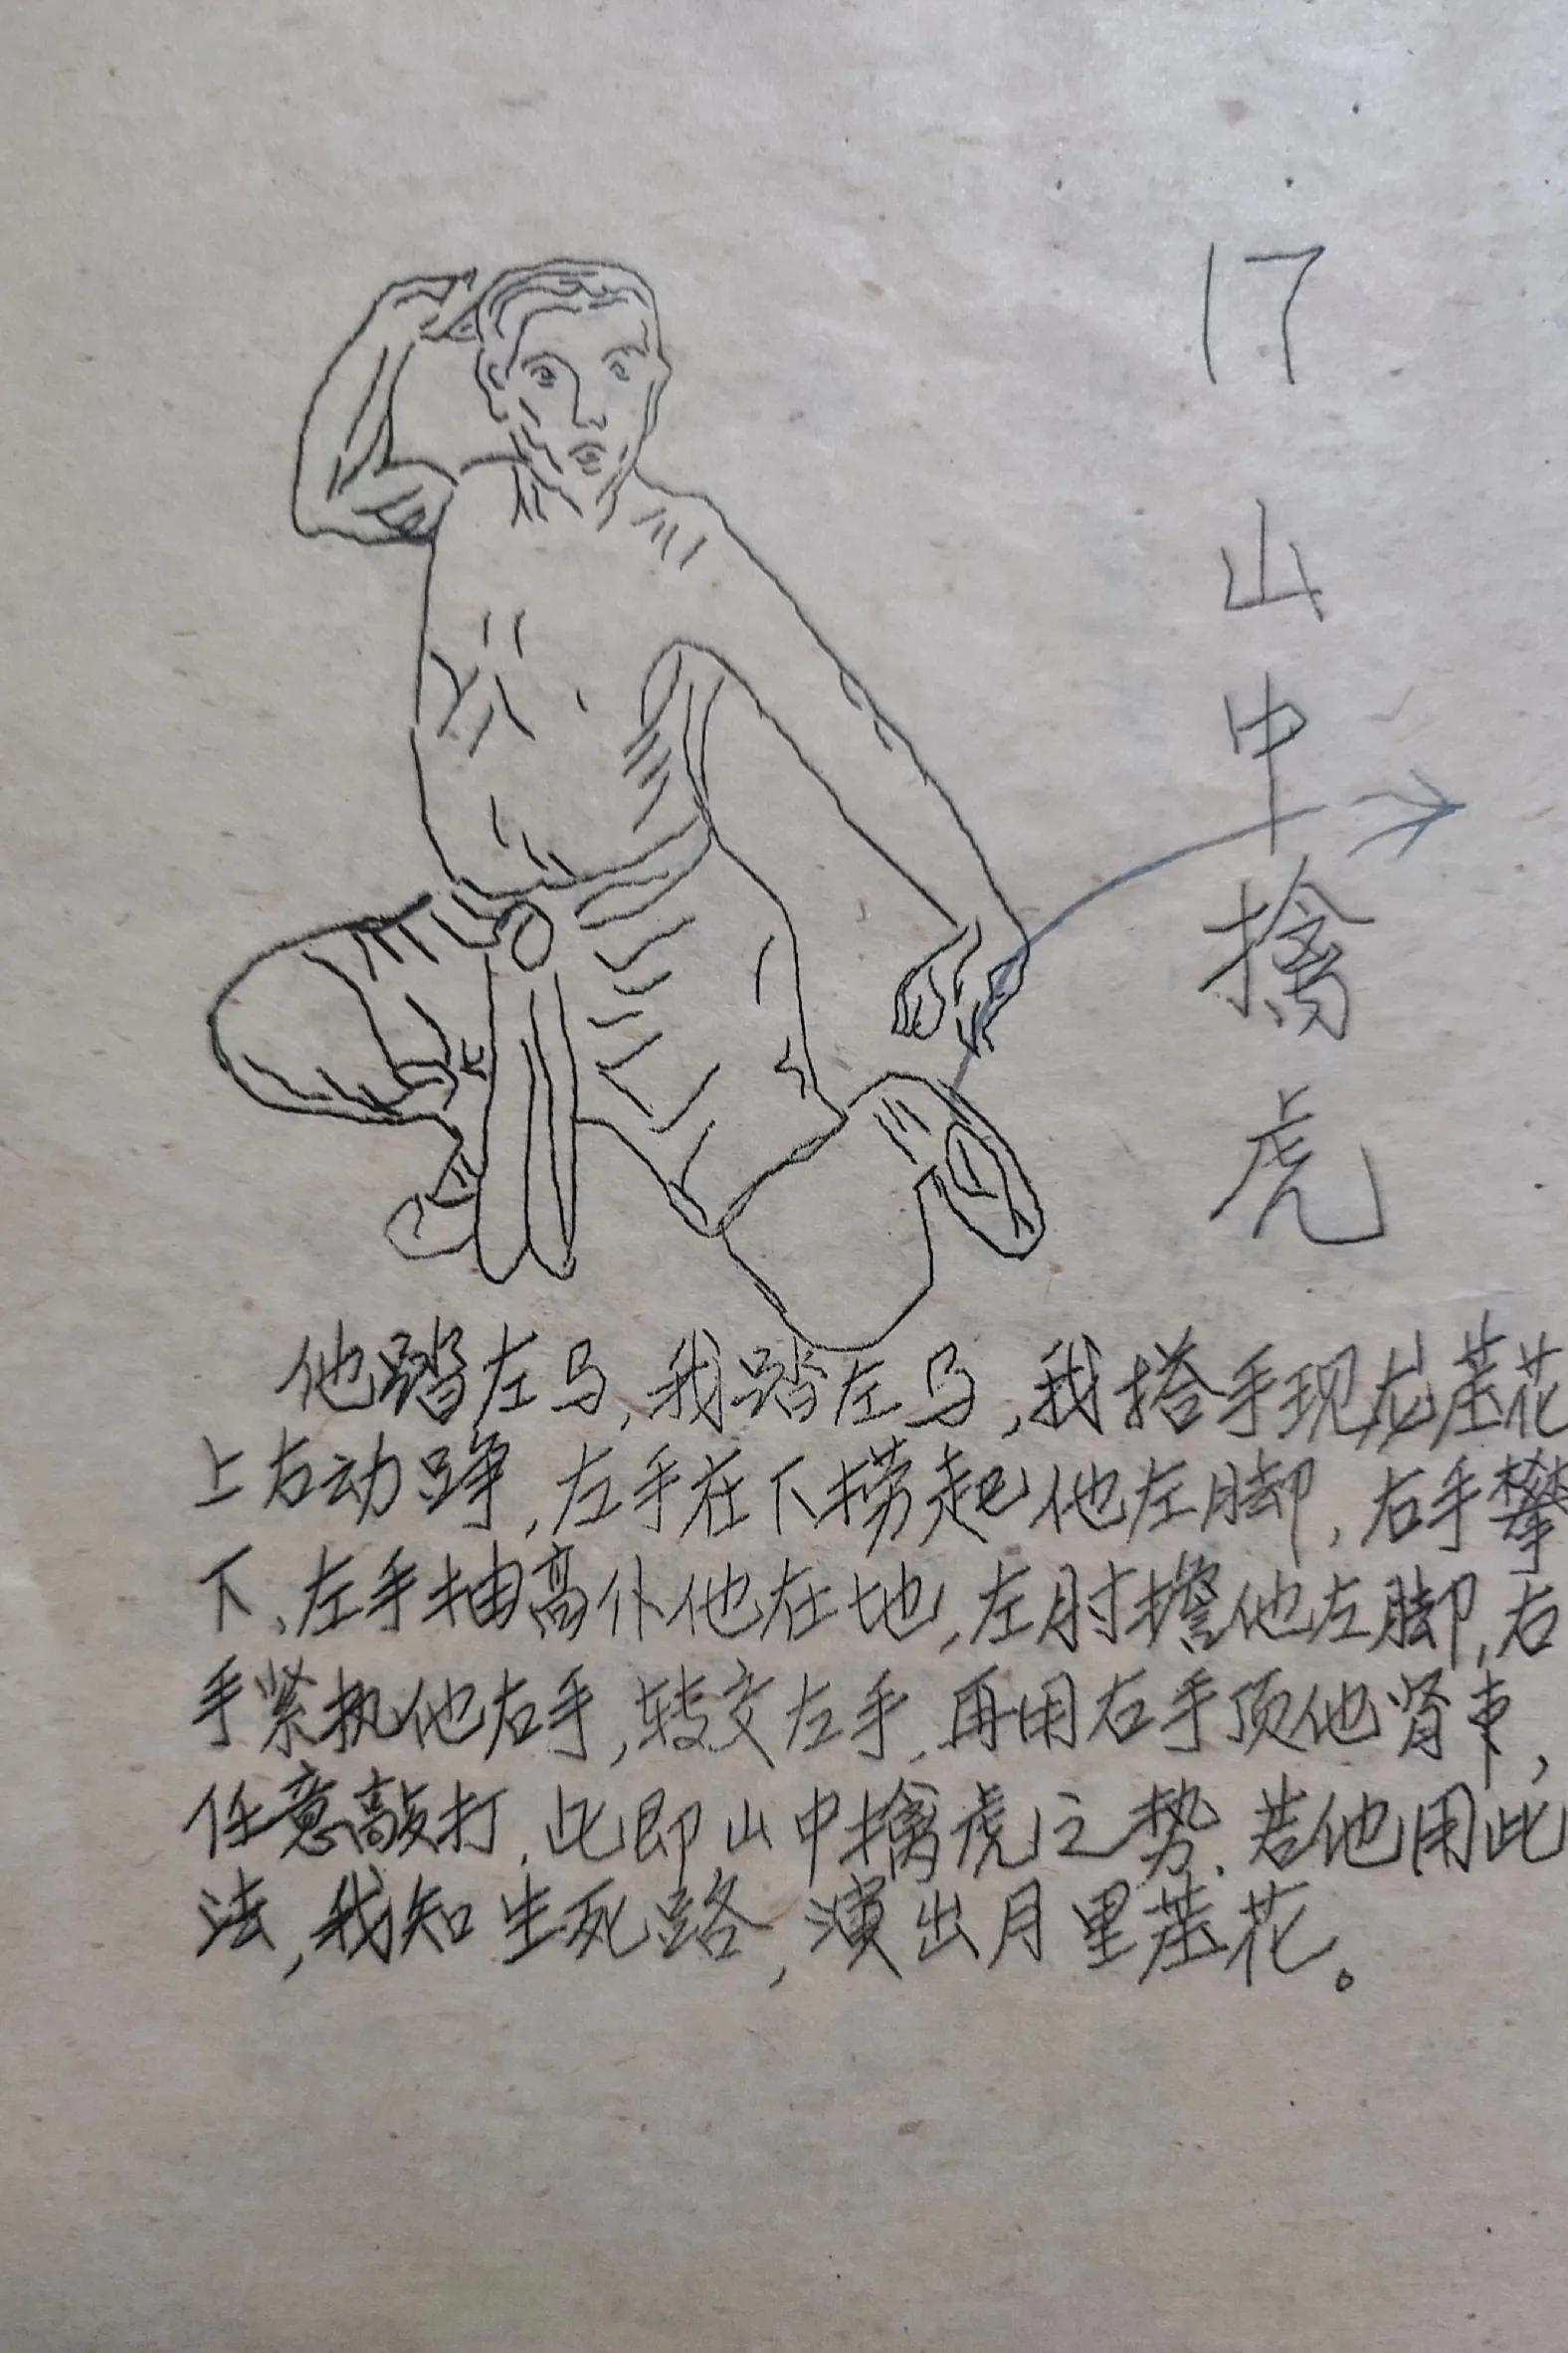 17
山中擒虎
他踏左马,我踏左马,我搭手现龙茎花
上右动踭,左手在下捞起他左脚,右手攀
下、左手抽高仆他在地,左肘擔他左脚,右
手紧执他右手,转交左手,再用右手顶他肾束,
任意敲打.此即山中擒虎之势.若他用此
法,我知生死路,演出月里茎花。